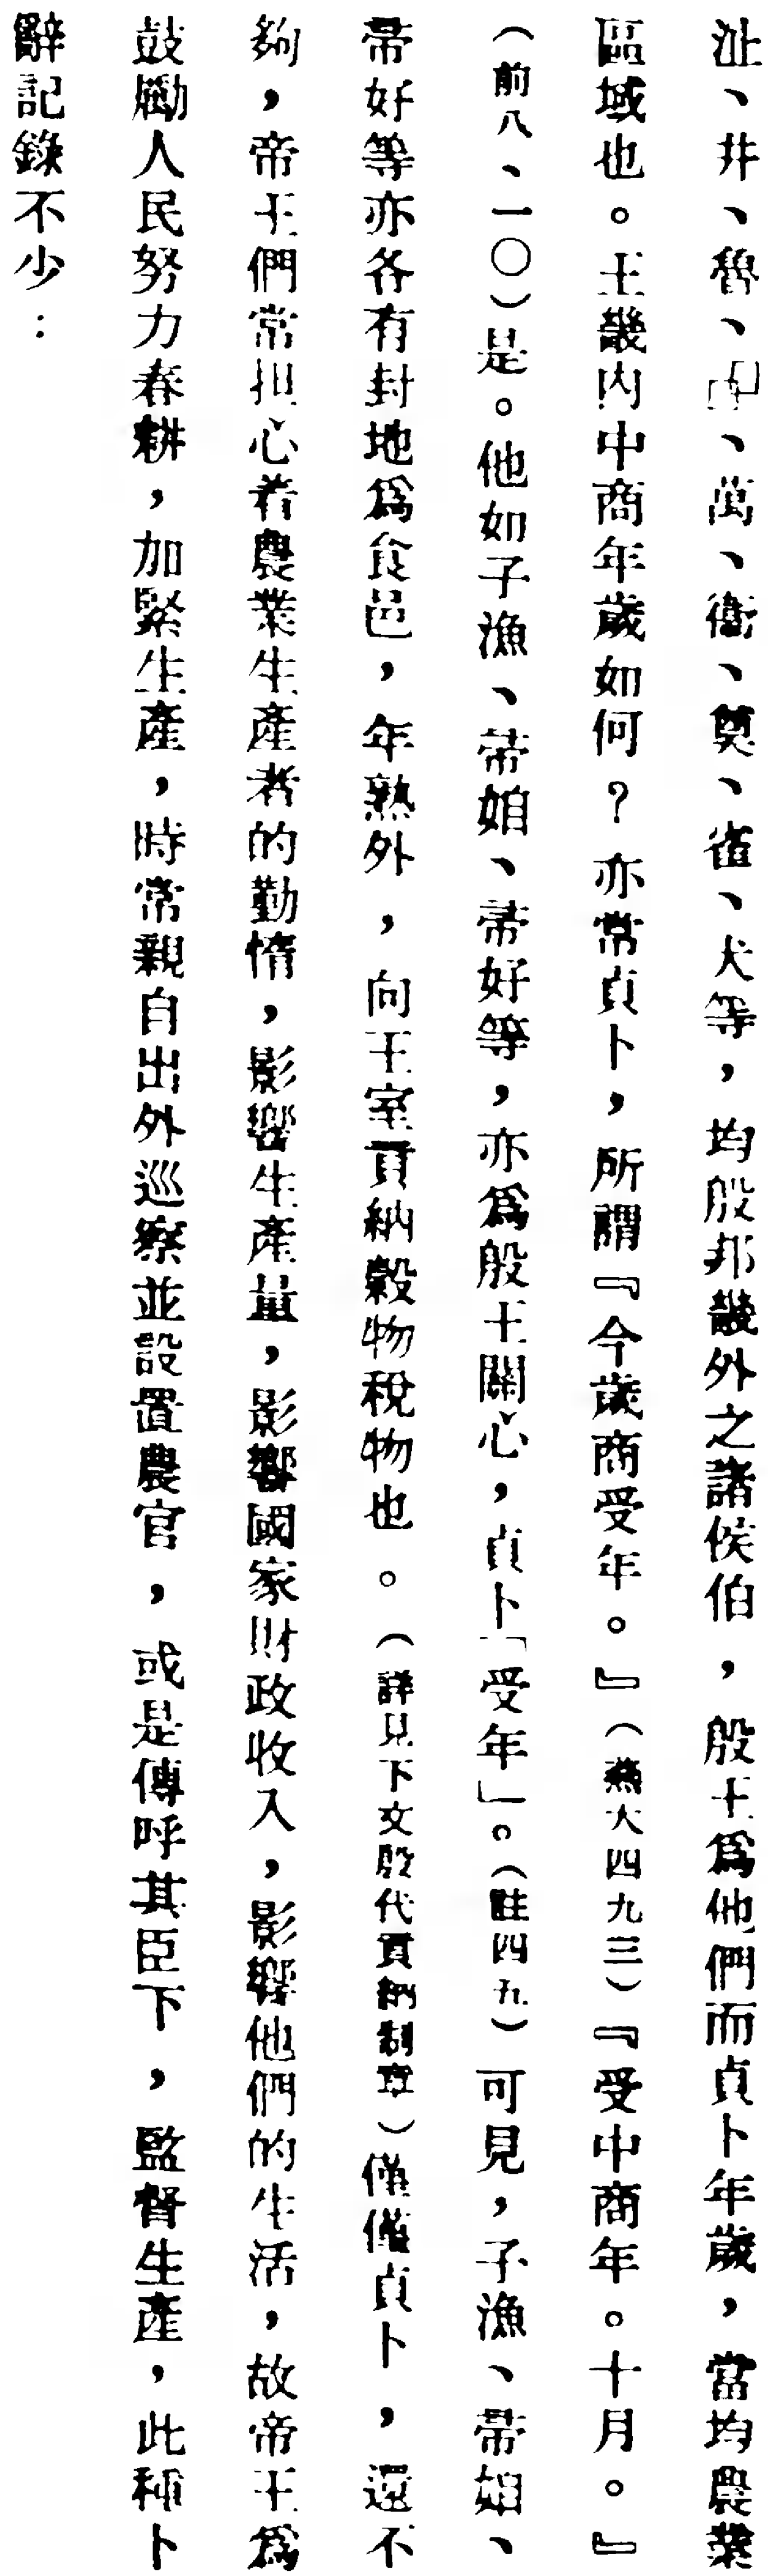 沚、井、魯、、萬、衞、奠、雀、犬等，均殷邦畿外之諸侯伯，殷王爲他們而貞卜年歲，當均農業
區域也。王畿內中商年歲如何？亦常貞卜，所謂『今歲商受年。』（燕大四九三）『受中商年。十月。』
（前八、一〇）是。他如子漁、帚姐、帚好等，亦爲殷王關心，貞卜「受年」。（註四五）可見，子漁、帚姐、
帚好等亦各有封地爲食邑，年熟外，向王室貢納穀物稅物也。（詳見下文殷代貢納制章）僅僅貞卜，還不
夠，帝王們常担心着農業生產者的勤惰，影響生產量，影響國家財政收入，影響他們的生活，故帝王爲
鼓勵人民努力春耕，加緊生產，時常親自出外巡察並設置農官，或是傳呼其臣下，監督生產，此種卜
辭記錄不少：